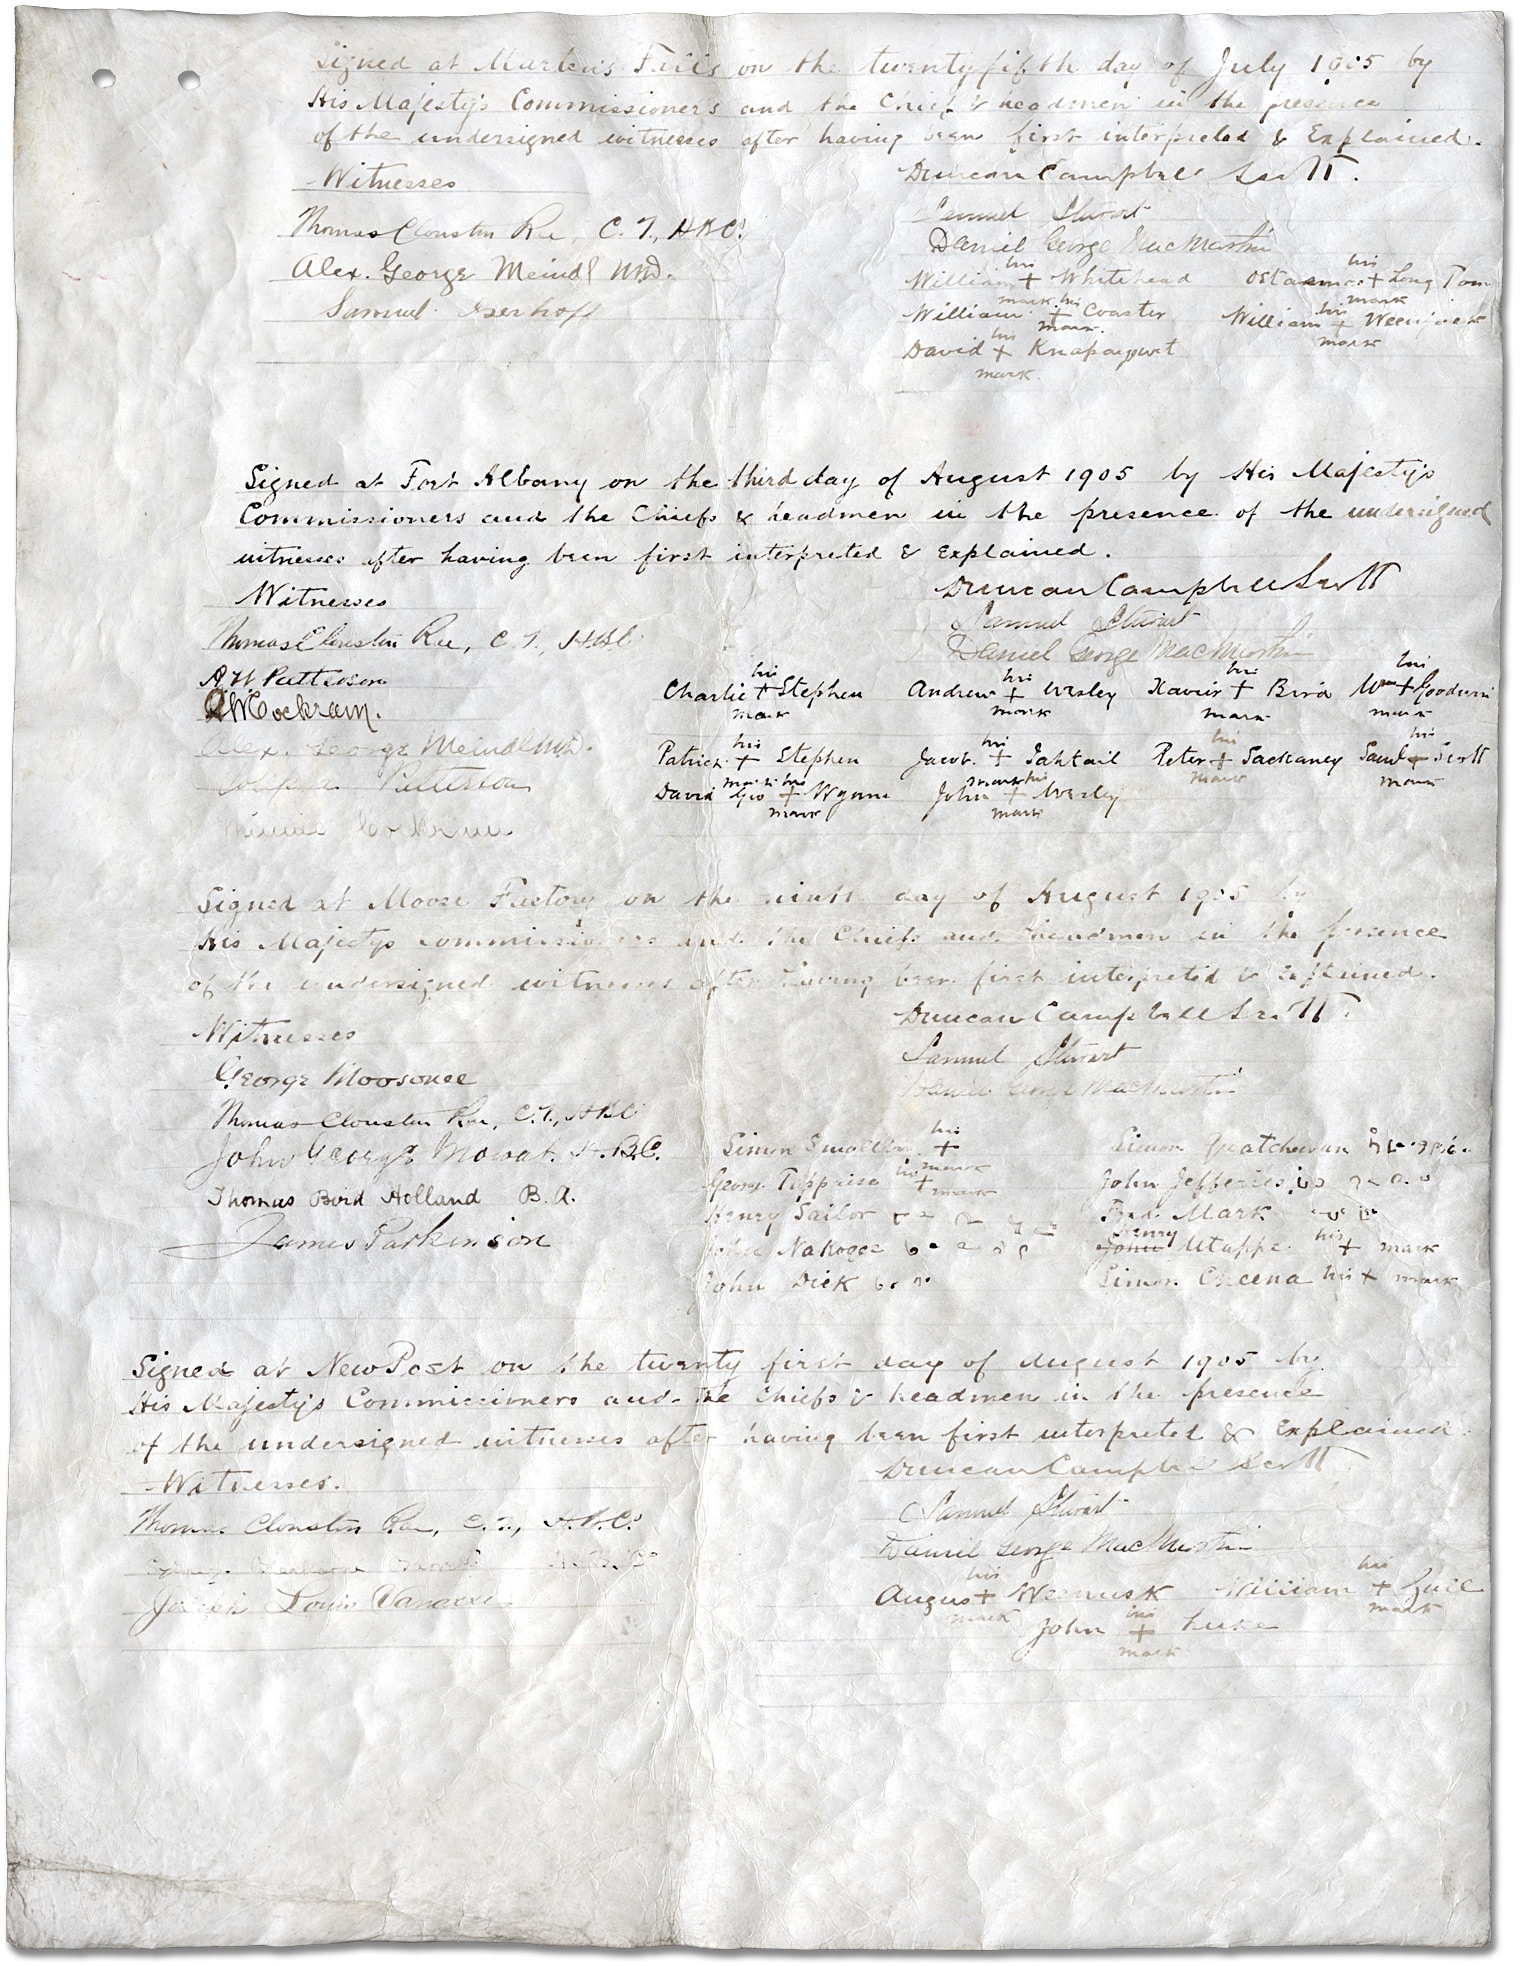 Signed at Marten's Falls on the twenty fifth day of July 1905 by
His Majesty's Commissioners and the Chief & headmen in the presence
of the undersigned witnesses after having been first interpreted & Explained.
Witnesses
Duncan Campbell Scott.
Thomas Clouston Rae, C. T., H B C.
Samuel Stewart
Daniel George MacMartin
Alex. George Meindl M.D.
William his + mark Whitehead
Long Tom
Samuel Iserhoff
William his + mark Coaster
William his + mark
David his + mark
Signed at Fort Albany on the third day of August 1905 by His Majesty's
Commissioners and the Chiefs & headmen in the presence of the undersigned
witnesses after having been first interpreted & Explained.
Witnesses
Duncan Campbell Scott
Samuel Stewart
Thomas Clouston Rae, C. T., H.B.C
Daniel George MacMartin
A W Patterson
Charlie his + mark Stephen
Andrew his + mark Wesley
Xavier his + mark Bird
Wm his + mark Goodwin
W Cockram.
Alex. George Meindl M.D.
Patrick his + mark Stephen
Jacob his + mark Tahtail
Peter his + mark Sackaney
Saml his + mark Scott
Patterson
David Geo his + mark Wynne
John his + mark Wesley
Minnie Cockram
Signed at Moose Factory on the ninth day of August 1905 by
His Majesty's commissioners and the Chiefs and headmen in the presence
of the undersigned witnesses after having been first interpreted & explained.
Witnesses
Duncan Campbell Scott.
Samuel Stewart
George Moosonee
Daniel George MacMartin
Thomas Clouston Rae, C.T., H B C
John George Mowat. H. B.C.
Simon Smallboy his + mark
Simon
George Tappaise his + mark
John Jefferies
Thomas Bird Holland B. A.
Henry Sailor
Fred. Mark
James Parkinson
John Nakogee
John Henry Utappe his + mark
John Dick
Simon Cheena his + mark
Signed at New Post on the twenty first day of August 1905 by
His Majesty's Commissioners and the Chiefs & headmen in the presence
of the undersigned witnesses after having been first interpreted & Explained.
Witnesses.
Duncan Campbell Scott.
Thomas Clouston Rae, C. T., H. B. C.
Samuel Stewart
Daniel George MacMartin
H. B. C
Joseph Louis Vanasse
Angus his + mark Weenusk
William his + mark Gull
John his + mark Luke